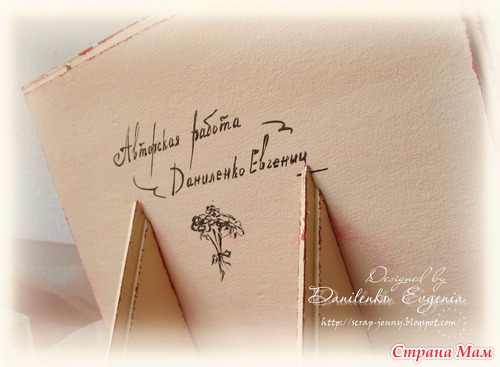 Авторская работа
Даниленко Евгении
Designed by
Danilenko Evgenia
http://scrap-jenny.blogspot.com/
Страна Мам